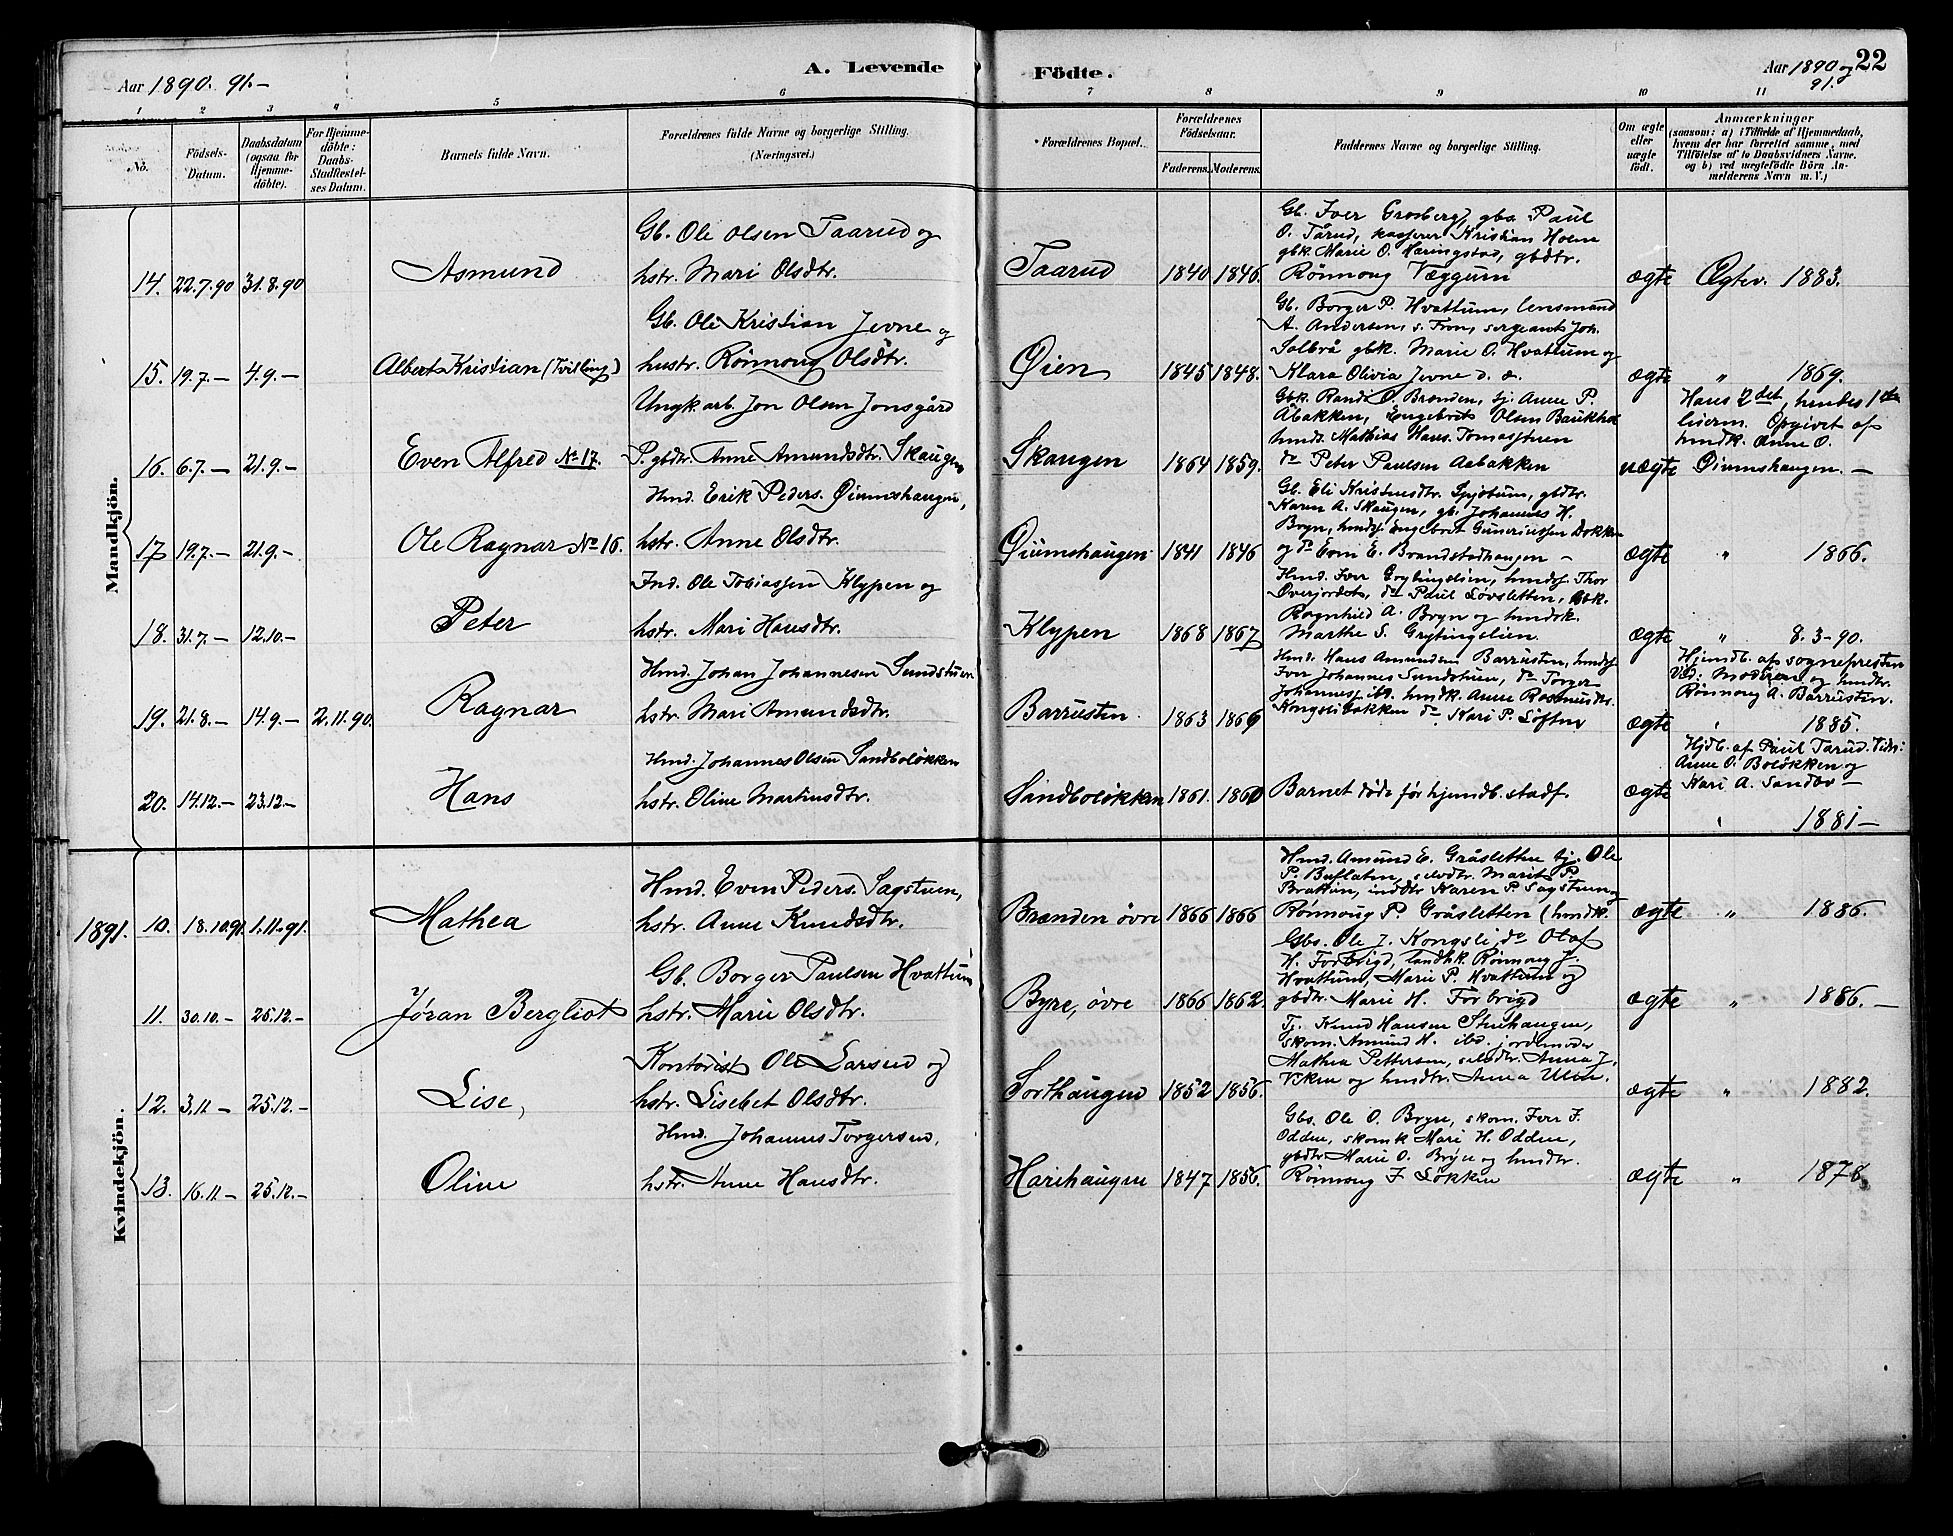 Aar 1890. 91.-
A. Levende Födte.
Aar 1890 og 91.
22
1 2 3 4 5 6 7 8 9 10 11
No.
Födsels-Datum.
Daabsdatum (ogsaa for Hjemmedöbte).
For Hjemmedöbte: Daabs-Stadfæstelses Datum.
Barnets fulde Navn.
Forældrenes fulde Navne og borgerlige Stilling.
(Næringsvei.)
Forældrenes Bopæl.
Forældrenes Födselsaar.
Faderens. Moderens.
Faddernes Navne og borgerlige Stilling.
Om ægte eller uægte födt.
Anmærkninger
(saasom: a) i Tilfælde af Hjemmedaab,
hvem der har forrettet samme, med
Tilföielse af to Daabsvidners Navne.
og b) ved uægtefödte Börn An-
melderens Navn m. V.)
Mandkjön.
14. 22.7.90 31.8.90 Asmund
Gb. Ole Olsen Taarud og
hstr. Mari Olsdtr.
Taarud 1840 1846.
Gb. Iver Grosberg, gbs. Paul
O. Tårud, kasserer Kristian Holm
gbk. Marie O. Haringstad, gbdtr.
Rønnoug Væggum
ægte Ægtev. 1883.
15. 19.7.— 4.9.— Albert Kristian (Tvilling)
Gb. Ole Kristian Jevne og
hustr. Rønnoug Olsdtr.
Øien 1845 1848.
Gb. Borger P. Hvattum, lensmand
A. Andersen, s. Fron, sergeant Joh.
Solbrå gbk. Marie O. Hvattum og
Klara Olivia Jevne d. d.
ægte " 1869.
16. 6.7.— 21.9.— Even Alfred No 17.
Ungk. arb. Jon Olsen Jonsgård
P. gbdtr. Anne Amundsdtr. Skaugen
Skaugen 1864 1859.
Gbk. Randi O. Brænden, tj. Anne P.
Åbakken, Engebret Olsen
hmds. Mathias Hans.
do Peter Paulsen Aabakken
uægte
Hans 2det, hendes 1ste
lierm. Opgivet af
hmdk. Anne O.
Øiumshaugen.—
17 19.7.— 21.9.— Ole Ragnar No 16.
Hmd. Erik Peders. Øiumshaugen,
hstr. Anne Olsdtr.
Øiumshaugen 1841 1846
Gb. Eli Kristensdtr. Spjotum, gbdtr.
Karen A. Skaugen, gb. Johannes H.
Bryn, hmds. Engebret Guneriussen Dokken
og do Even E. Brandstadhaugen —
ægte " 1866.
18. 31.7.— 12.10.— Peter
Ind. Ole Tobiassen Klypen og
hstr. Mari Hansdtr.
Klypen 1868 1867
Hmd. Iver Grytingslien, hmds. Thor
Øverjordet, do Paul Løvsletten, gbk.
Ragnhild A. Bryn og hmdsk.
Marthe S. Grytingslien.
ægte " 8.3-90.
19. 21.8.— 14.9.— 2.11.90. Ragnar
Hmd. Johan Johannesen Sundstuen
hstr. Mari Amundsdtr.
Barrusten. 1863 1866
Hmd. Hans Amundsen Barrusten, hmds.
Iver Johannes Sundstuen, do Torger
Johannes. ibd. hmdk. Anne Rasmusdtr.
Kongslibakken do. Kari P. Loftne
ægte
Hjemdb. af sognepresten
Vid: Moderen og hmdtr.
Rønnoug A. Barrusten.
" 1885.
20. 14.12.— 23.12— Hans
Hmd. Johannes Olsen Sandboløkken
hstr. Oline Martinsdtr.
Sandboløkken 1861. 1860
Barnet døde før hjemdb. stadf.
ægte
Hjdb. af Paul Tarud. Vidn:
Anne O. Boløkken og
Kari A. Sandbo —
" 1881—
Kvindekjön.
1891. 10. 18.10.91. 1.11.91. Mathea
Hmd. Even Peders. Sagstuen,
hstr. Anne Knudsdtr.
Brænden øvre 1866 1866
Hmd. Amund E. Gråsletten tj. Ole
P. Buflaten, selvdtr. Marit P.
Brattin, inddtr Karen P. Sagstuen og
Rønnoug P Gråsletten (hmdk.
ægte " 1886.
11. 30.10.— 25.12.— Jøran Bergliot
Gb. Borger Paulsen Hvattum
hstr. Marie Olsdtr.
Byre, øvre 1866 1862.
Gbs. Ole J. Kongsli, do Olaf
H. Forbrigd, landhk. Rønnoug J.
Hvattum, Marie P. Hvattum og
gbdtr. Marie H. Forbrigd
ægte " 1886.—
12. 3.11.— 25.12.— Lise,
Kontorist Ole Larsen og
hstr. Lisebet Olsdtr.
Sorthaugen 1852 1856.
Tj. Knud Hansen Stuehaugen,
skom. Amund H. ibd. jordmoder
Mathea Pettersen, selvdtr. Anna J.
Viken og hmdtr. Anna Ulen.
ægte " 1882.
13. 16.11.— 25.12.— Oline
Hmd. Johannes Torgersen,
hstr. Anne Hansdtr.
Harihaugen 1847 1856.
Gbs. Ole O. Bryn, skom. Iver I.
Odden, skomk Mari H. Odden,
gbdtr Marie O. Bryn og hmdtr.
Rønnoug I Løkken
ægte " 1878.